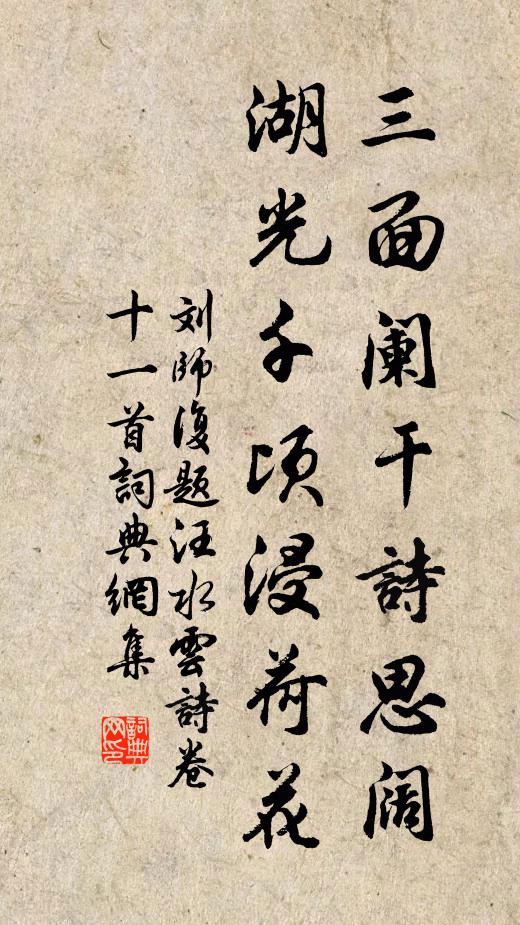 三面阑干詩思阔
湖光千顷浸荷花
刘師復题汪水雲詩卷
十一首詞典網集
詞典网印